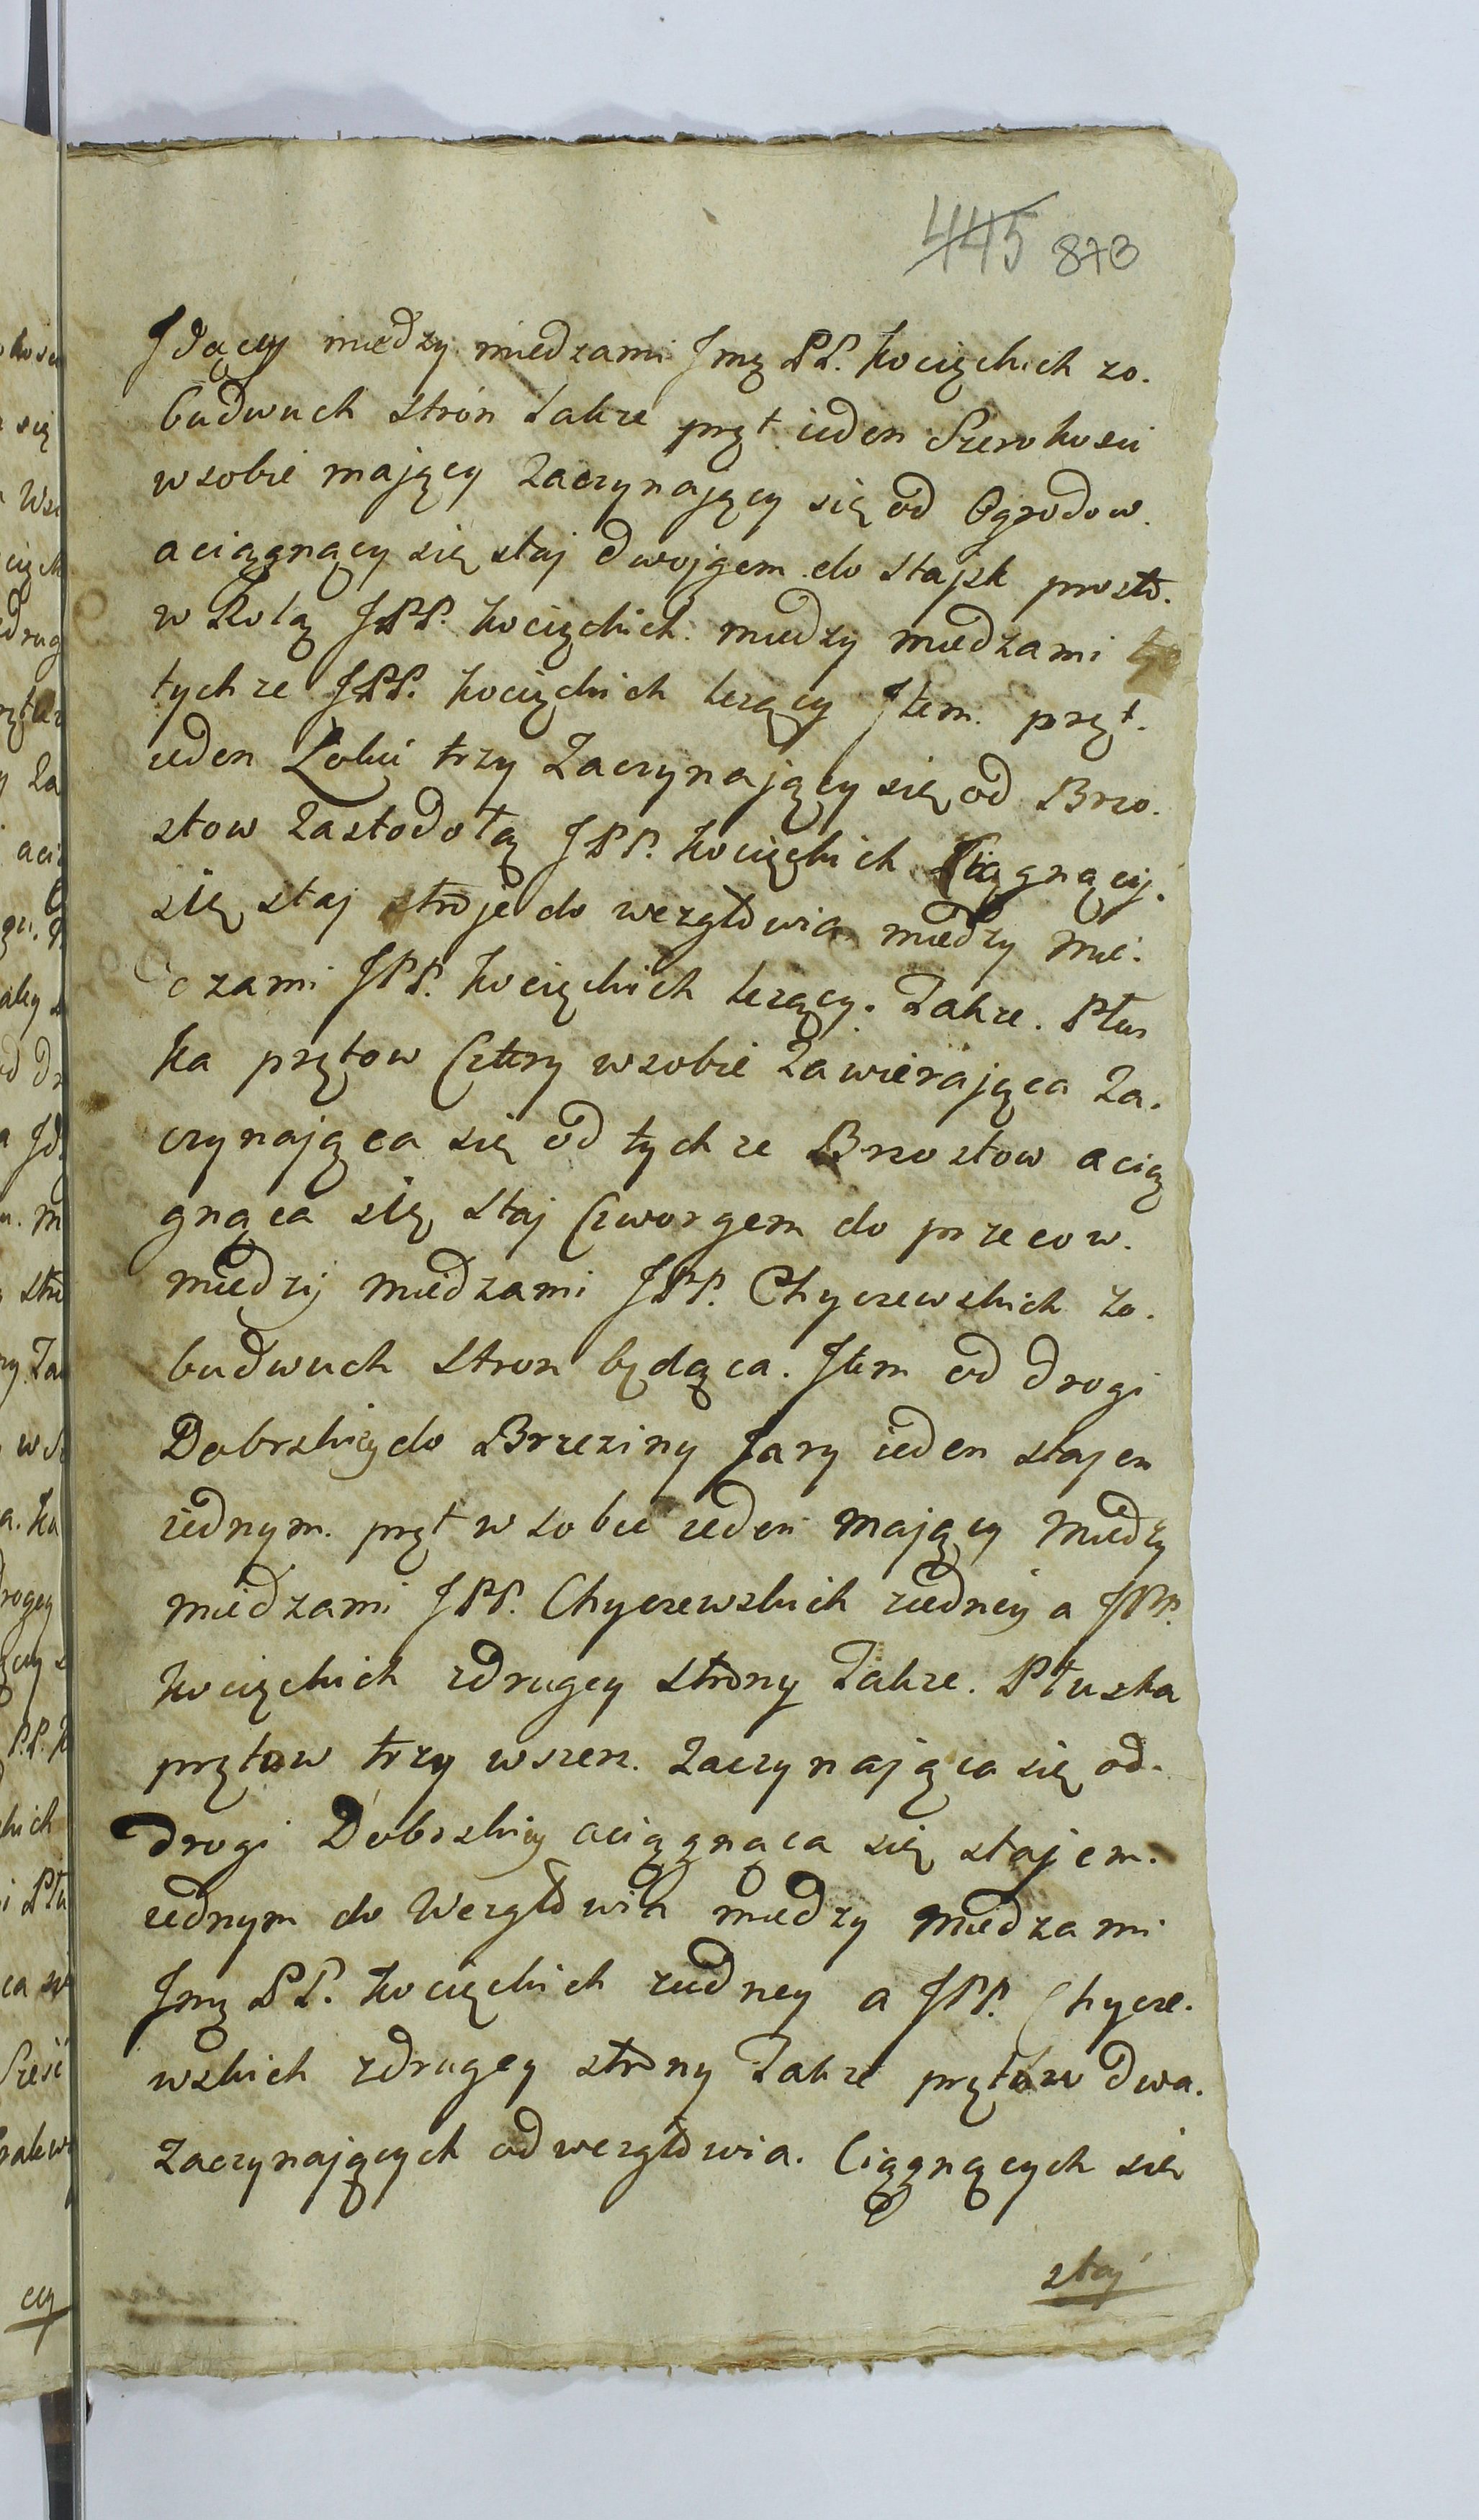 445 873
Jdący między miedzami Jmę PP. Kocięckich zo.
budwuch stron także pręt ieden Szerokosci
wsobie mający Zaczynający się od Ogrodow.
aciągnący się staj dwojgem do stajek prosto.
w Rolą JPP. Kocięckich między miedzami
tychze JPP. Kocięckich lezący Jtem. pręt.
ieden Łokci trzy Zaczynający się od Brzo.
stow Zastodołą JPP. Kocięckich Ciągnący.
się staj stroje do wezgłowia między mie.
dzami JPP. Kocięckich lezący. Także. Płus
ka prętow Cztery wsobie Zawierająca Za.
czynająca się od tychze Brzostow acią
gnąca się staj Czworgem do przecow.
między miedzami JPP. Chyczewskich zo.
budwuch stron będąca. Jtem od drogi
Dobrskiey do Brzeziny Jary ieden stajem
iednym. pręt wsobie ieden mający między
miedzami JPP. Chyczewskich ziedney a JPP.
Kocięckich zdrugey strony Także. Płuska
prętow trzy wszerz. Zaczynająca się od.
drogi Dobrskiey aciągnąca się stajem.
iednym do Wezgłowia między miedzami
Jmę PP. Kocięckich ziedney a JPP. Chycze.
wskich zdrugey strony Także prętow dwa.
Zaczynających od wezgłowia. Ciągnących się
staj